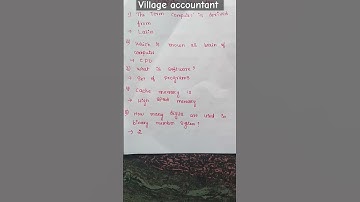 Village accountant
1) The term computer is derived
from
→ Latin
2) Which is known as brain of
computer
→ CPU
3) What is software?
→ Set of programs
4) Cache memory is
→ High speed memory
5) How many digits are used in
binary number system?
→ 2